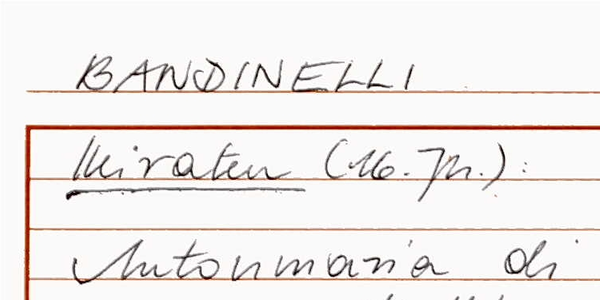 BANDINELLI
Heiraten (16. Jh.):
Antonmaria di